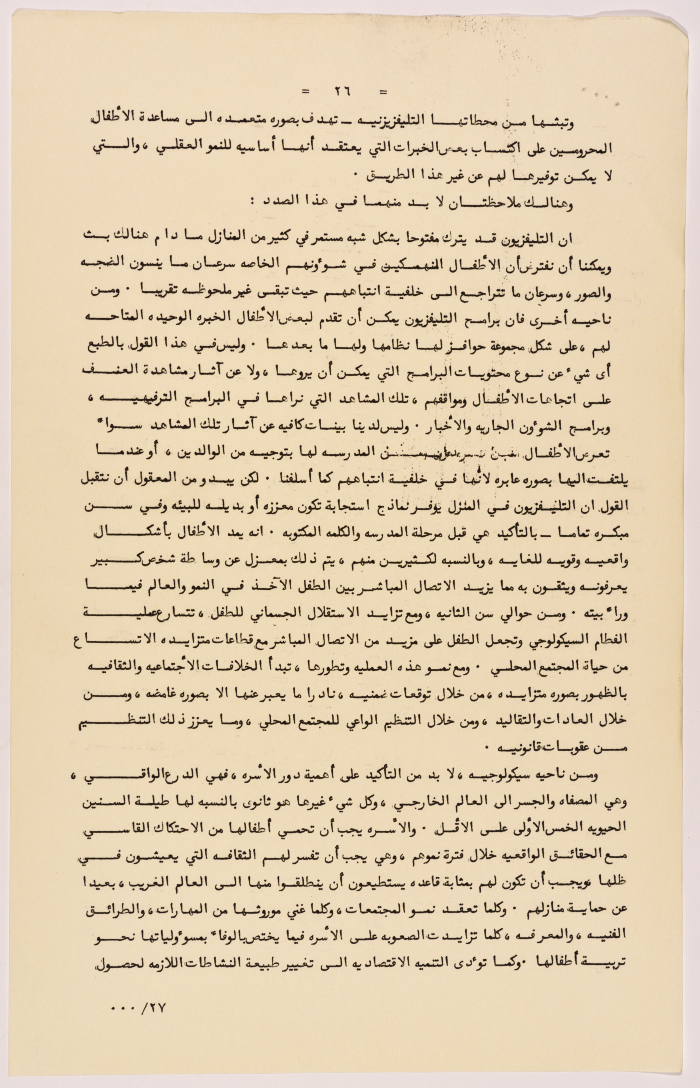 = ٢٦ =
وتبثها من محطاتها التليفزيزنيه ـ تهدف بصوره متعمده الى مساعدة الأطفال
المحرومين على اكتساب بعض الخبرات التي يعتقد أنها أساسيه للنمو العقلي ، والتي
لا يمكن توفيرها لهم عن غير هذا الطريق ٠
وهنالك ملاحظتان لا بد منهما في هذا الصدد :
ان التليفزيون قد يترك مفتوحا بشكل شبه مستمر في كثير من المنازل ما دام هنالك بث
ويمكننا أن نفترض أن الأطفال المنهمكين في شوءونهم الخاصه سرعان ما ينسون الضجه
والصور ، وسرعان ما تتراجع الى خلفية انتباههم حيث تبقى غير ملحوظه تقريبا ٠ ومن
ناحيه أخرى فان برامج التليفزيون يمكن أن تقدم لبعض الأطفال الخبره الوحيده المتاحه
لهم ، على شكل مجموعة حوافز لها نظامها ولها ما بعدها ٠ وليس في هذا القول بالطبع
أى شيء عن نوع محتويات البرامج التي يمكن أن يروها ، ولا عن آثار مشاهدة العنف
على اتجاهات الأطفال ومواقفهم ، تلك المشاهد التي نراها في البرامج الترفيهيه ،
وبرامج الشوءون الجاريه والأخبار ٠ وليس لدينا بينات كافيه عن آثار تلك المشاهد سواء
تعرض الأطفال المدرسه لها بتوجيه من الوالدين ، أو عندما
يلتفت اليها بصوره عابره لأنها في خلفية انتباههم كما أسلفنا ٠ لكن يبدو من المعقول أن نتقبل
القول ان التليفزيون في المنزل يوفر نماذج استجابة تكون معززه أو بديله للبيئه وفي سن
مبكره تماما ـ بالتأكيد هي قبل مرحلة المدرسه والكلمه المكتوبه ٠ انه يمد الأطفال بأشكال
واقعيه وقويه للغايه ، وبالنسبه لكثيرين منهم ، يتم ذلك بمعزل عن وساطة شخص كبير
يعرفونه ويثقون به مما يزيد الاتصال المباشر بين الطفل الآخذ في النمو والعالم فيما
وراء بيته ٠ ومن حوالي سن الثانيه ، ومع تزايد الاستقلال الجسماني للطفل ، تتسارع عملية
الفطام السيكولوجي وتجعل الطفل على مزيد من الاتصال المباشر مع قطاعات متزايده الاتساع
من حياة المجتمع المحلي ٠ ومع نمو هذه العمليه وتطورها ، تبدأ الخلافات الأجتماعيه والثقافيه
بالظهور بصوره متزايده ، من خلال توقعات ضمنيه ، نادرا ما يعبر عنها الا بصوره غامضه ، ومن
خلال العادات والتقاليد ، ومن خلال التنظيم الواعي للمجتمع المحلي ، وما يعزز ذلك التنظيم
من عقوبات قانونيه ٠
ومن ناحيه سيكولوجيه ، لا بد من التأكيد على أهمية دور الأسره ، فهي الدرع الواقي ،
وهي المصفاه والجسر الى العالم الخارجي ، وكل شيء غيرها هو ثانوى بالنسبه لها طيلة السنين
الحيويه الخمس الأولى على الأقل ٠ والأسره يجب أن تحمي أطفالها من الاحتكاك القاسي
مع الحقائق الواقعيه خلال فترة نموهم ، وهي يجب أن تفسر لهم الثقافه التي يعيشون في
ظلها ، ويجب أن تكون لهم بمثابة قاعده يستطيعون أن ينطلقوا منها الى العالم الغريب ، بعيدا
عن حماية منازلهم ٠ وكلما تعقد نمو المجتمعات ، وكلما غني موروثها من المهارات ، والطرائق
الفنيه ، والمعرفه ، كلما تزايدت الصعوبه على الأسره فيما يختص بالوفاء بمسوءولياتها نحو
تربية أطفالها ٠ وكما توءدى التنميه الاقتصاديه الى تغيير طبيعة النشاطات اللازمه لحصول
٠٠٠/٢٧